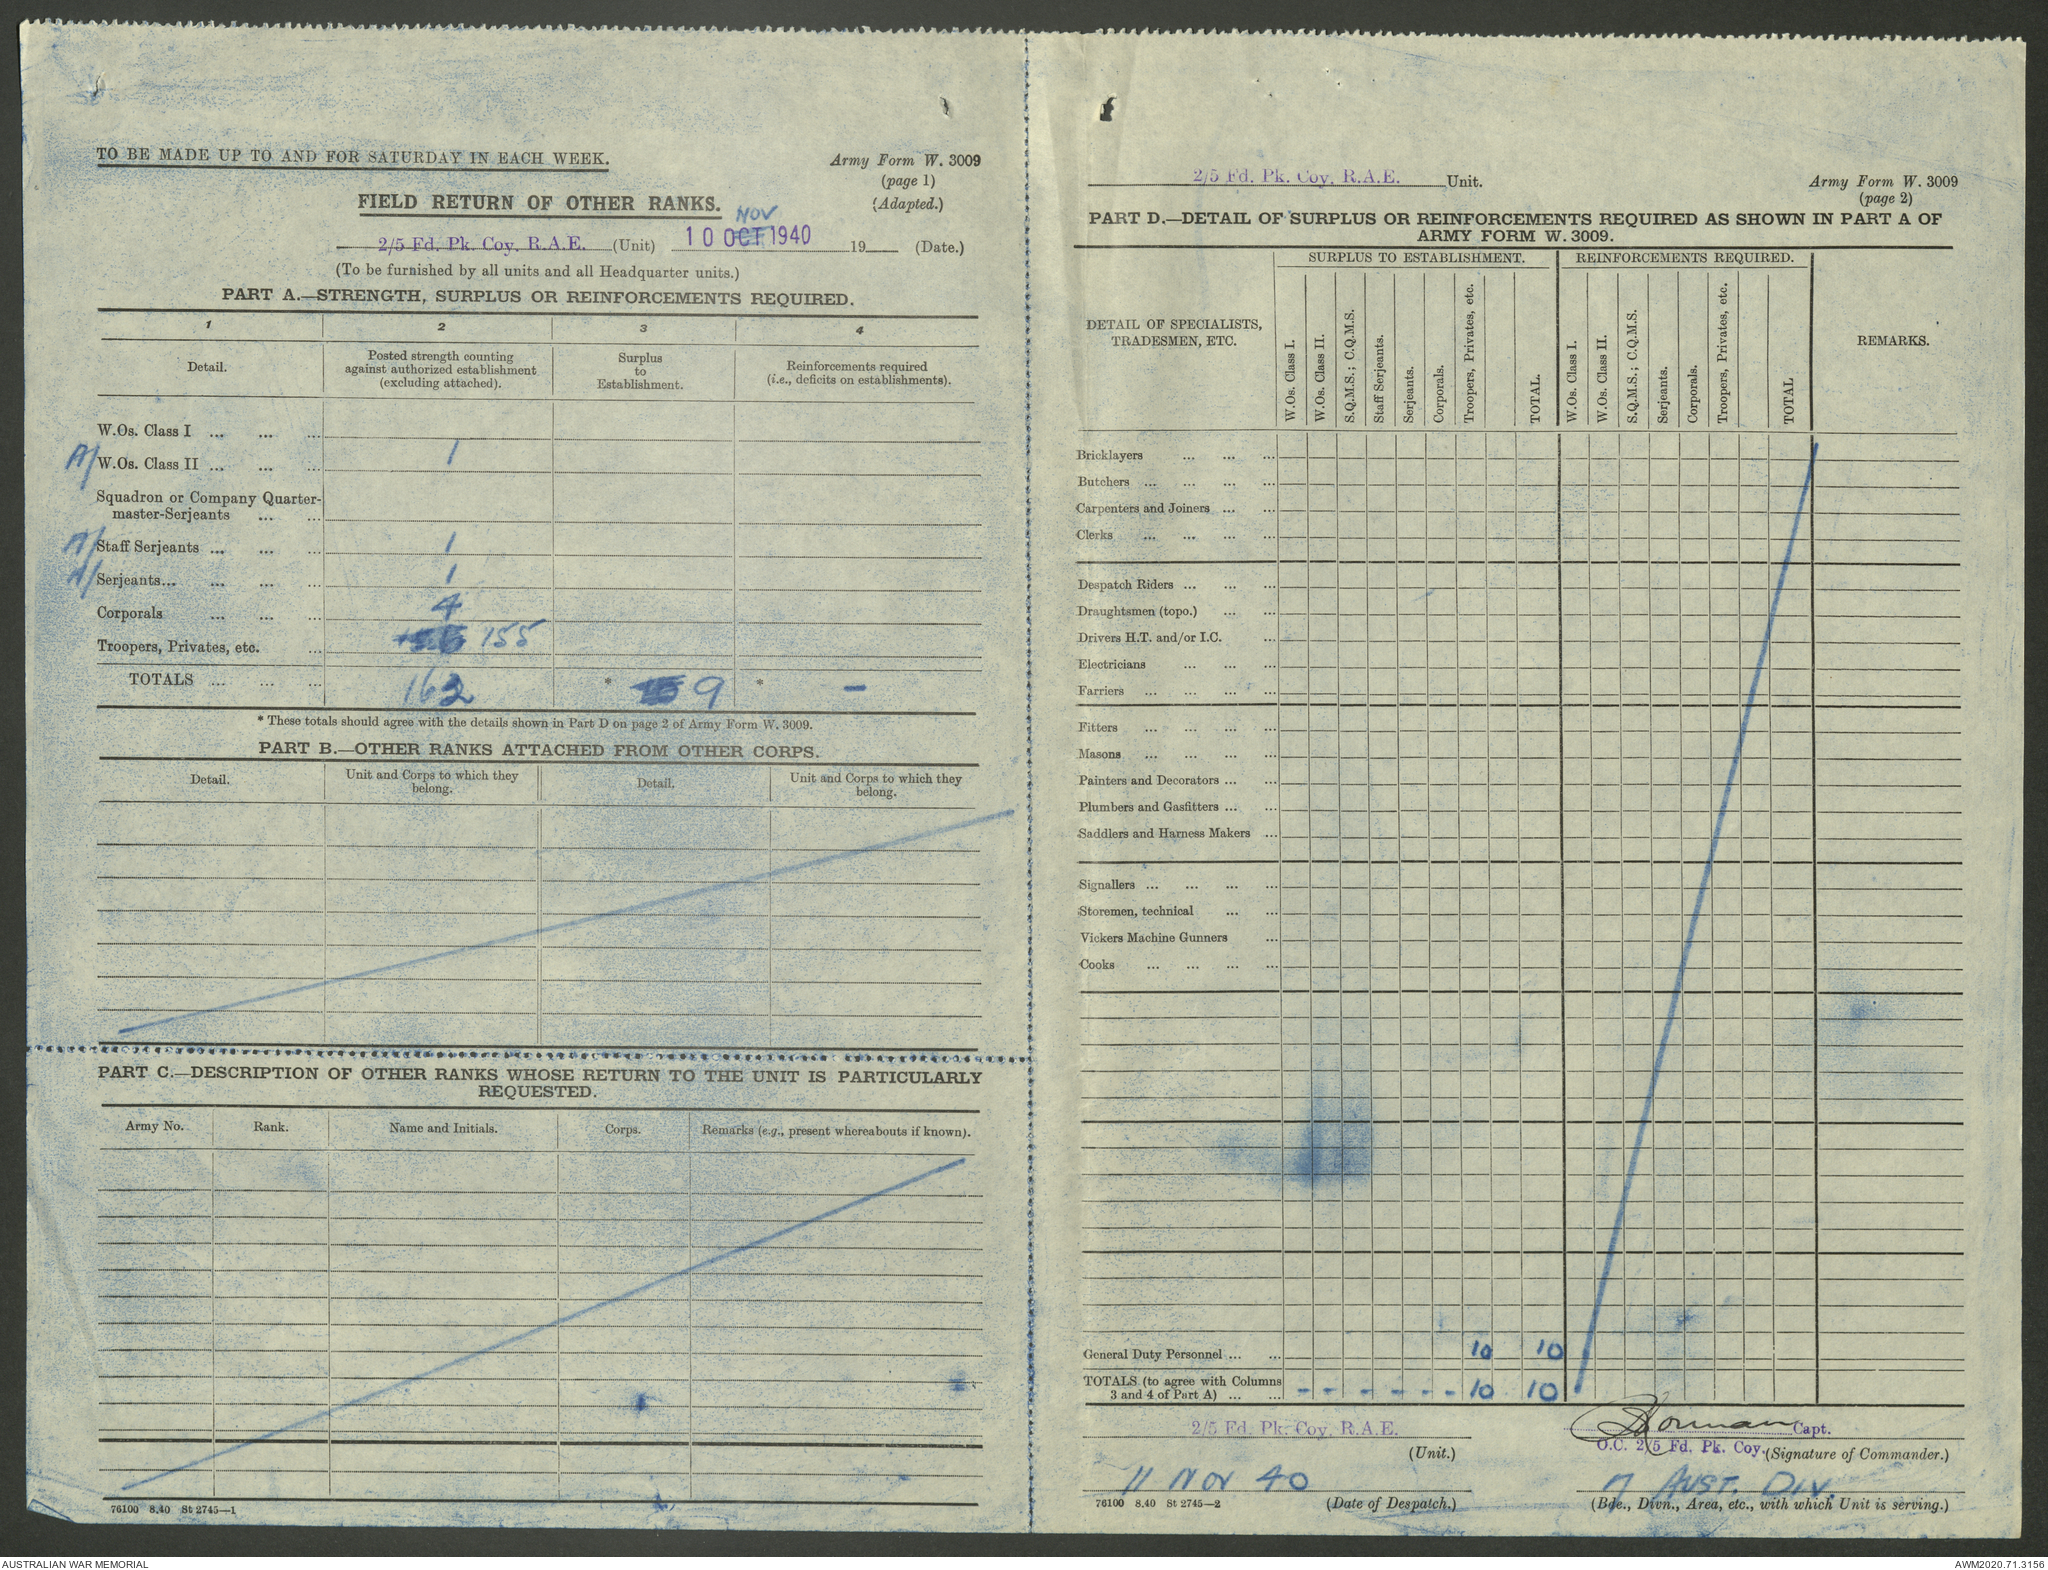 TO BE MADE UP TO AND FOR SATURDAY IN EACH WEEK.
Army Form W. 3009
(page 1)
(Adapted.)
FIELD RETURN OF OTHER RANKS.
NOV
2/5 Fd. Pk. Coy. R.A.E. (Unit) 10 OCT 1940 19 (Date.)
(To be furnished by all units and all Headquarter units.)
PART A.—STRENGTH, SURPLUS OR REINFORCEMENTS REQUIRED.
1 2 3 4
Detail.
Posted strength counting against authorized establishment (excluding attached).
Surplus to Establishment.
Reinforcements required (i.e., deficits on establishments).
W.Os. Class I ... ... ...
A/ W.Os. Class II ... ... ... 1
Squadron or Company Quarter-
master-Serjeants ... ...
A/ Staff Serjeants ... ... ... 1
A/ Serjeants... ... ... ... 1
Corporals ... ... ... 4
Troopers, Privates, etc. ... 155
TOTALS ... ... ... 162 * 9 * –
* These totals should agree with the details shown in Part D on page 2 of Army Form W. 3009.
PART B.—OTHER RANKS ATTACHED FROM OTHER CORPS.
Detail.
Unit and Corps to which they belong.
Detail.
Unit and Corps to which they belong.
PART C.—DESCRIPTION OF OTHER RANKS WHOSE RETURN TO THE UNIT IS PARTICULARLY
REQUESTED.
Army No. Rank. Name and Initials. Corps. Remarks (e.g., present whereabouts if known).
76100 8.40 St 2745—1
2/5 Fd. Pk. Coy. R.A.E. Unit.
Army Form W. 3009
(page 2)
PART D.—DETAIL OF SURPLUS OR REINFORCEMENTS REQUIRED AS SHOWN IN PART A OF
ARMY FORM W. 3009.
SURPLUS TO ESTABLISHMENT. REINFORCEMENTS REQUIRED.
DETAIL OF SPECIALISTS,
TRADESMEN, ETC.
W.Os. Class I.
W.Os. Class II.
S.Q.M.S.; C.Q.M.S.
Staff Serjeants.
Serjeants.
Corporals.
Troopers, Privates, etc.
TOTAL.
W.Os. Class I.
W.Os. Class II.
S.Q.M.S.; C.Q.M.S.
Serjeants.
Corporals.
Troopers, Privates, etc.
TOTAL
REMARKS.
Bricklayers ... ... ...
Butchers ... ... ... ...
Carpenters and Joiners ... ...
Clerks ... ... ... ...
Despatch Riders ... ... ...
Draughtsmen (topo.) ... ...
Drivers H.T. and/or I.C. ...
Electricians ... ... ...
Farriers ... ... ... ...
Fitters ... ... ... ...
Masons ... ... ... ...
Painters and Decorators ... ...
Plumbers and Gasfitters ... ...
Saddlers and Harness Makers ...
Signallers ... ... ... ...
Storemen, technical ... ...
Vickers Machine Gunners ...
Cooks ... ... ... ...
General Duty Personnel ... ... 10 10
TOTALS (to agree with Columns
3 and 4 of Part A) ... ... - - - - - - 10 10
2/5 Fd. Pk. Coy. R.A.E.
(Unit.)
Capt.
O.C. 2/5 Fd. Pk. Coy. (Signature of Commander.)
11 NOV 40
7 AUST. DIV.
76100 8.40 St 2745—2 (Date of Despatch.)
(Bde., Divn., Area, etc., with which Unit is serving.)
AUSTRALIAN WAR MEMORIAL
AWM2020.71.3156